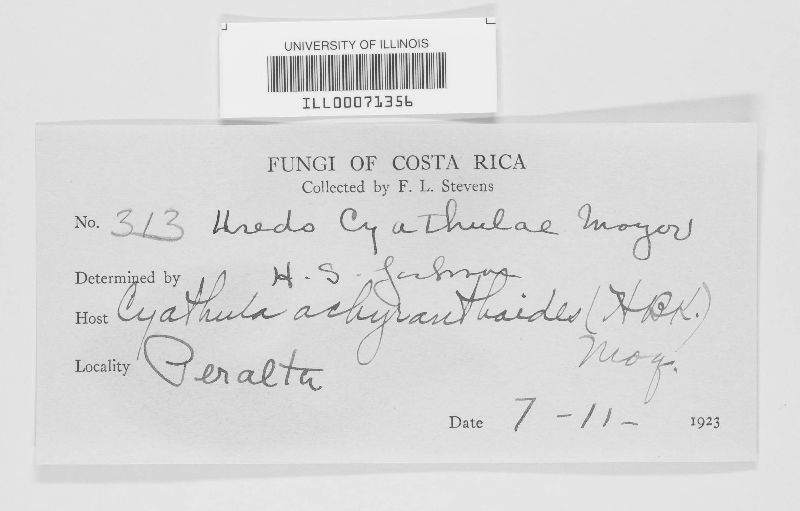 UNIVERSITY OF ILLINOIS
ILL00071356
FUNGI OF COSTA RICA
Collected by F. L. Stevens
No. 313 Uredo Cyathulae Mayor
Determined by H. S. Jackson
Host Cyathula achyranthoides (HBK.)
Moq.
Locality Peralta
Date 7-11- 1923